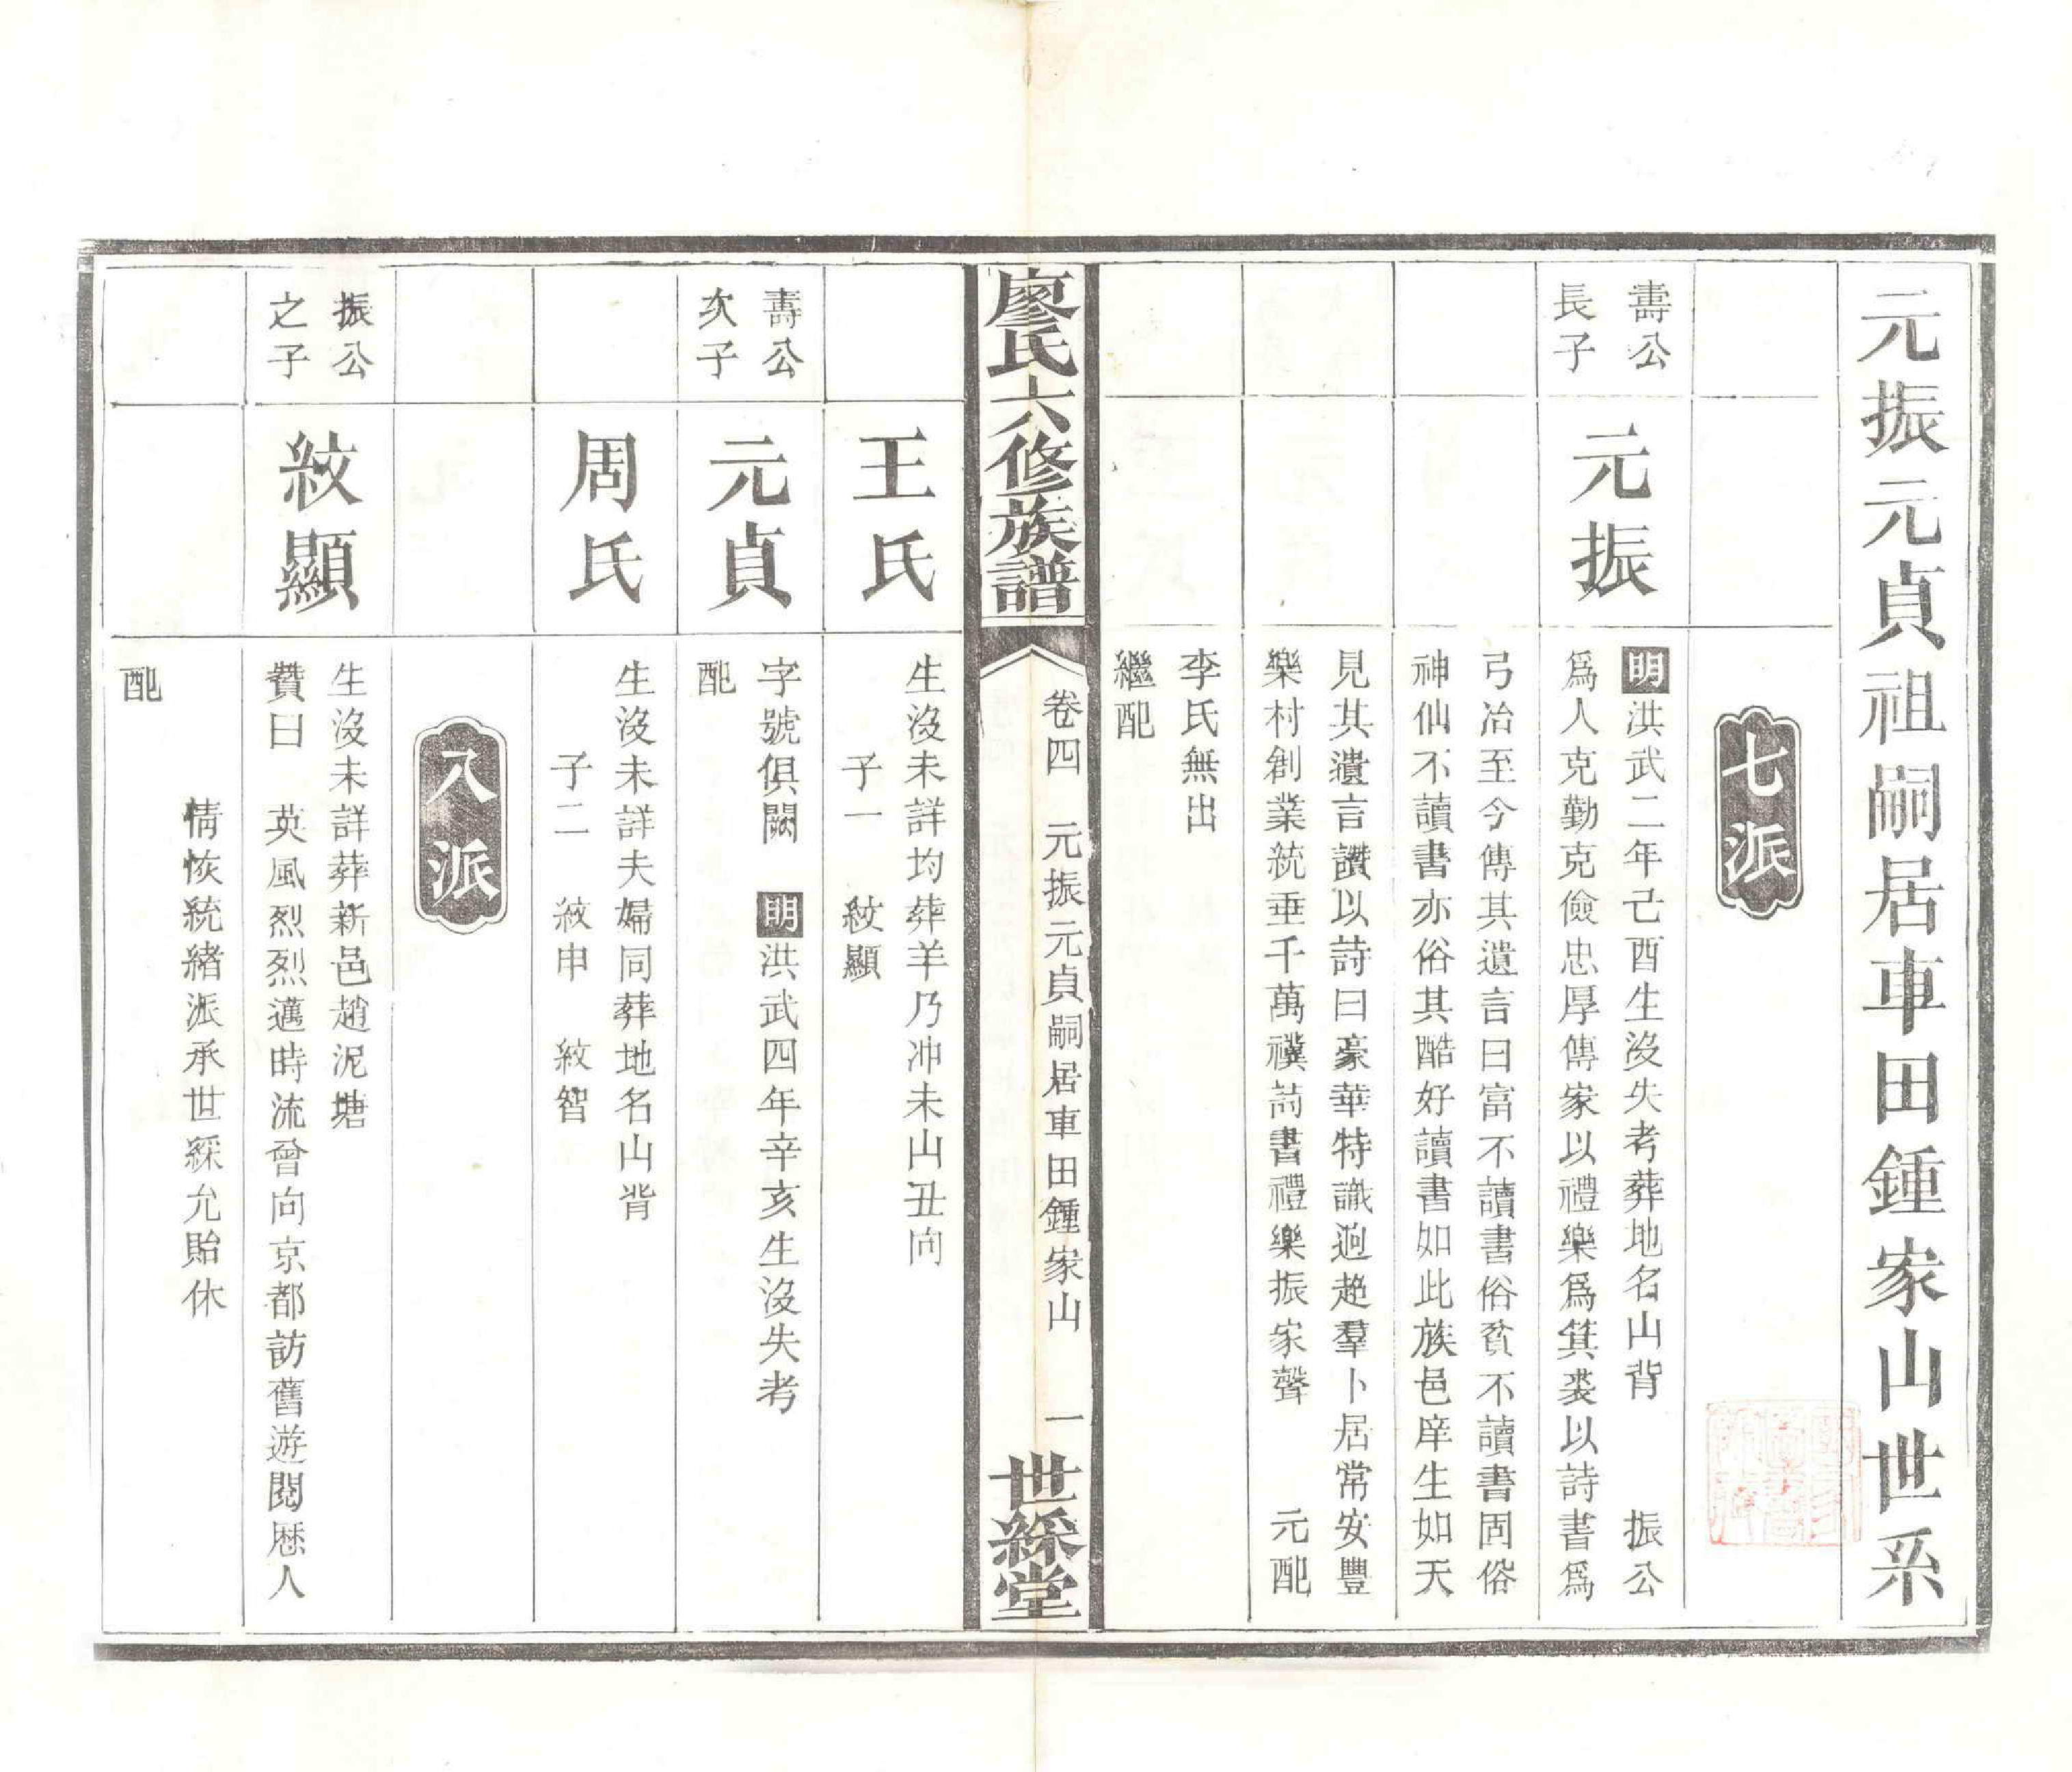 元振元貞祖嗣居車田鍾家山世系
七派
壽公
長子
元振
明洪武二年己酉生沒失考葬地名山背　振公
爲人克勤克儉忠厚傳家以禮樂爲箕裘以詩書爲
弓冶至今傳其遺言曰富不讀書俗貧不讀書固俗
神仙不讀書亦俗其酷好讀書如此族邑庠生如天
見其遺言讚以詩曰豪華特識逈超羣卜居常安豐
樂村創業統垂千萬禩詩書禮樂振家聲　元配
李氏無出
繼配
廖氏六修族譜
卷四　元振元貞嗣居車田鍾家山　一
世綵堂
王氏
生沒未詳均葬羊乃冲未山丑向
子一　紋顯
壽公
次子
元貞
字號俱闕　明洪武四年辛亥生沒失考
配
周氏
生沒未詳夫婦同葬地名山背
子二　紋申　紋智
八派
振公
之子
紋顯
生沒未詳葬新邑趙泥塘
贊曰　英風烈烈邁時流曾向京都訪舊遊閱歷人
情恢統緒派承世綵允貽休
配